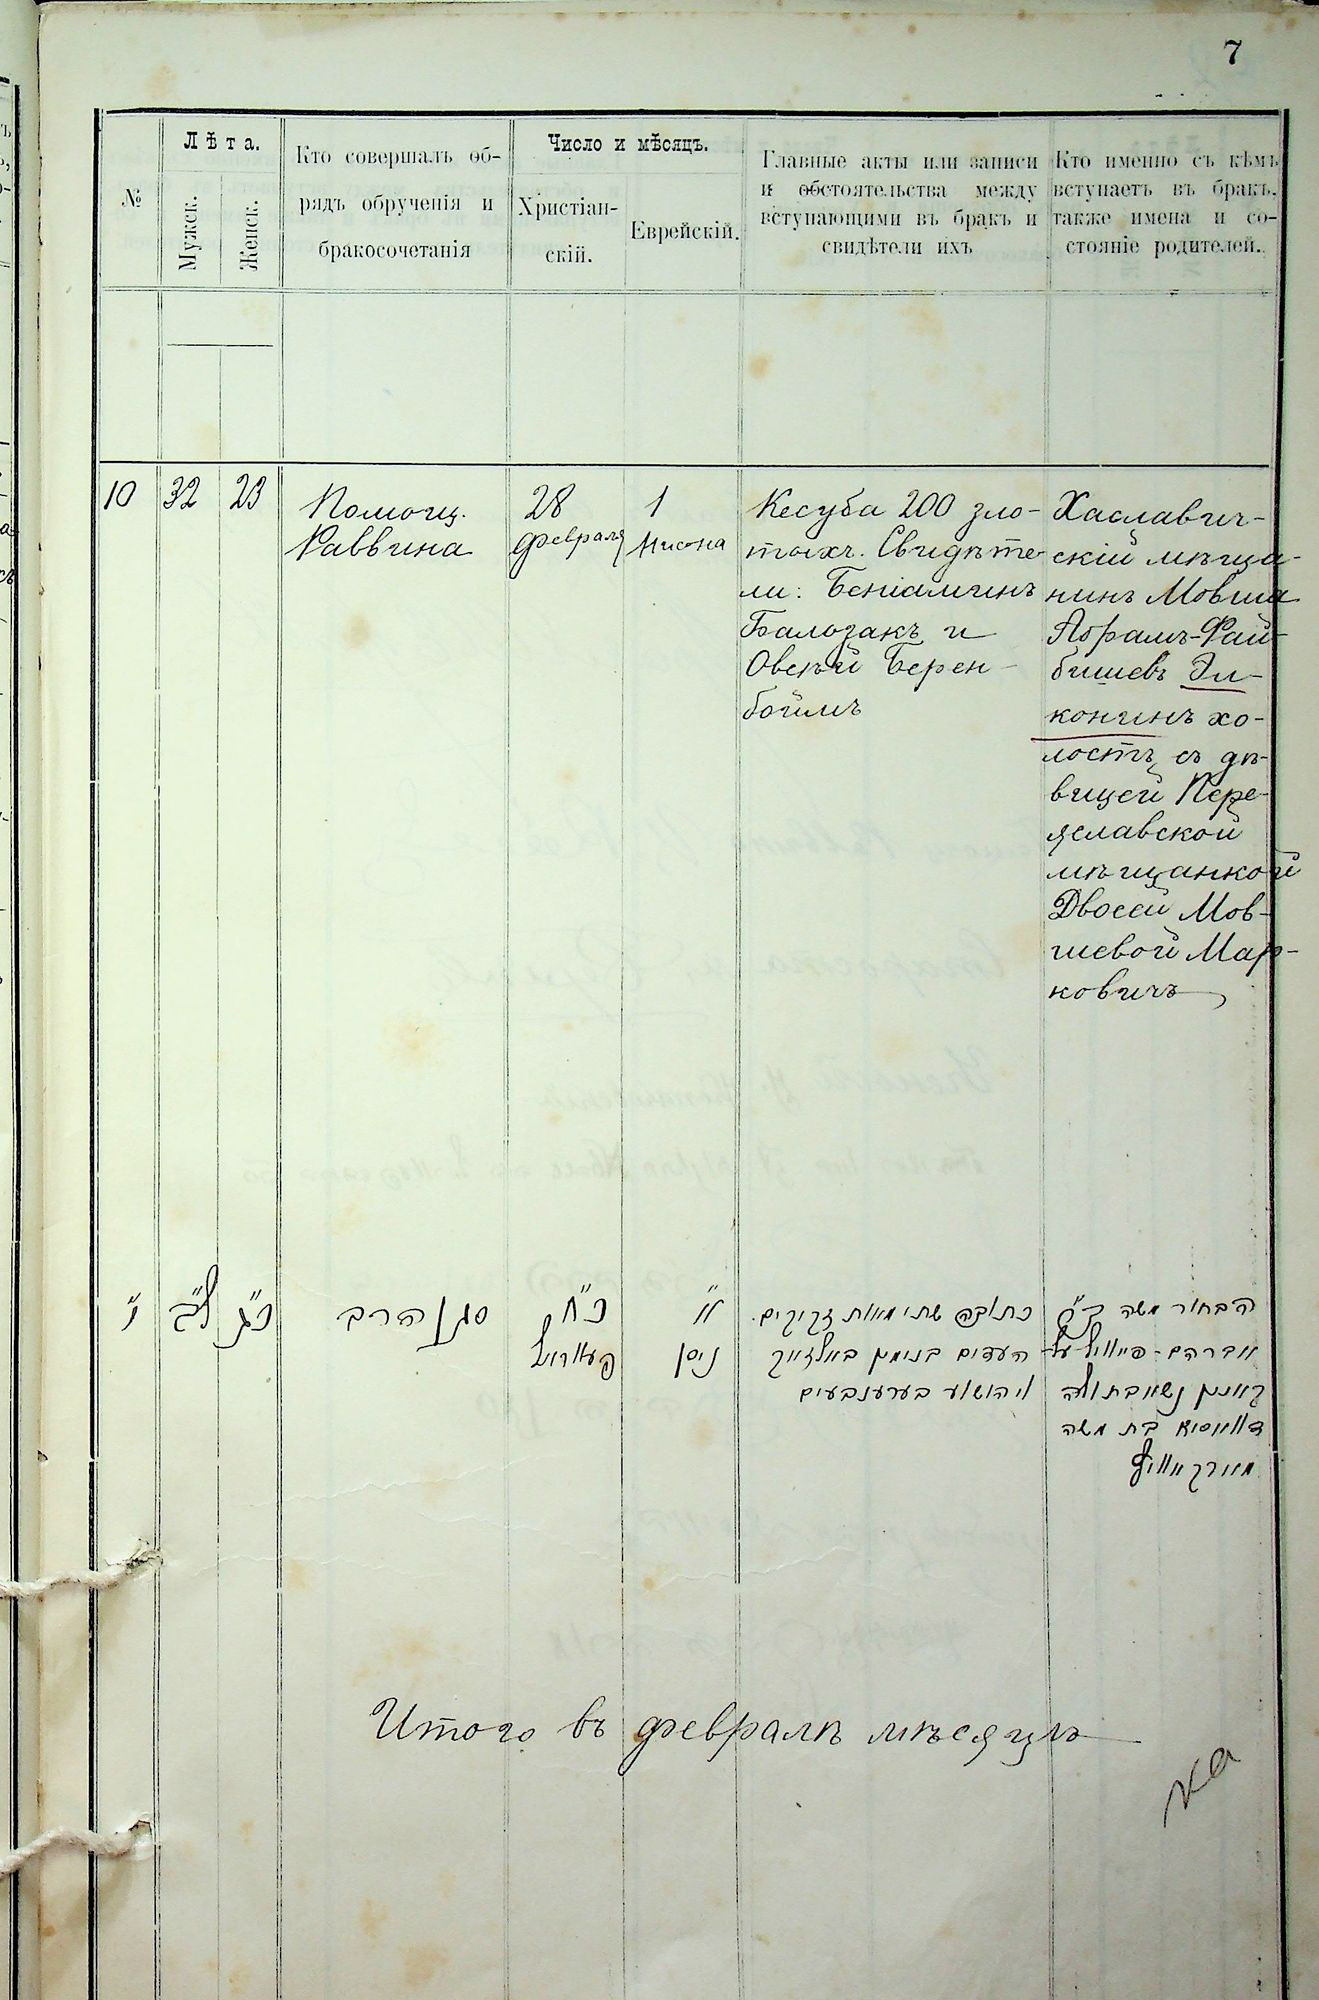 7
№
Лѣта.
Мужск.
Женск.
Кто совершалъ об-
рядъ обрученія и
бракосочетанія
Число и мѣсяцъ.
Христіан-
скій.
Еврейскій.
Главные акты или записи
и обстоятельства между
вступающими въ бракъ и
свидѣтели ихъ
Кто именно съ кѣмъ
вступаетъ въ бракъ,
также имена и со-
стояніе родителей.
10
32
23
Помощ.
Раввина
28
февраля
1
Нисона
Кесуба 200 зло-
тыхъ. Свидѣте-
ли: Беніаминъ
Балозакъ и
Овсѣй Берен-
боймъ
Хаславич-
скій мѣща-
нинъ Мовша
Абрамъ-Фай-
бишевъ Эл-
конинъ хо-
лостъ, съ дѣ-
вицей Пере-
яславской
мѣщанкой
Двосей Мов-
шевой Мар-
ковичъ
י"
ל"ב
כ"ג
סגן הרב
כ"ח
פעווראל
א"
ניסן
כתובה שתי מאות זקוקים.
העדים בנימין באלזאק
ויהושע בערענבעים
הבחור משה ב"ר
אברהם - פייוויל על-
קאנין נשא בתולה
דוואסיא בת משה
מארקאוויץ
Итого въ февралѣ мѣсяцѣ